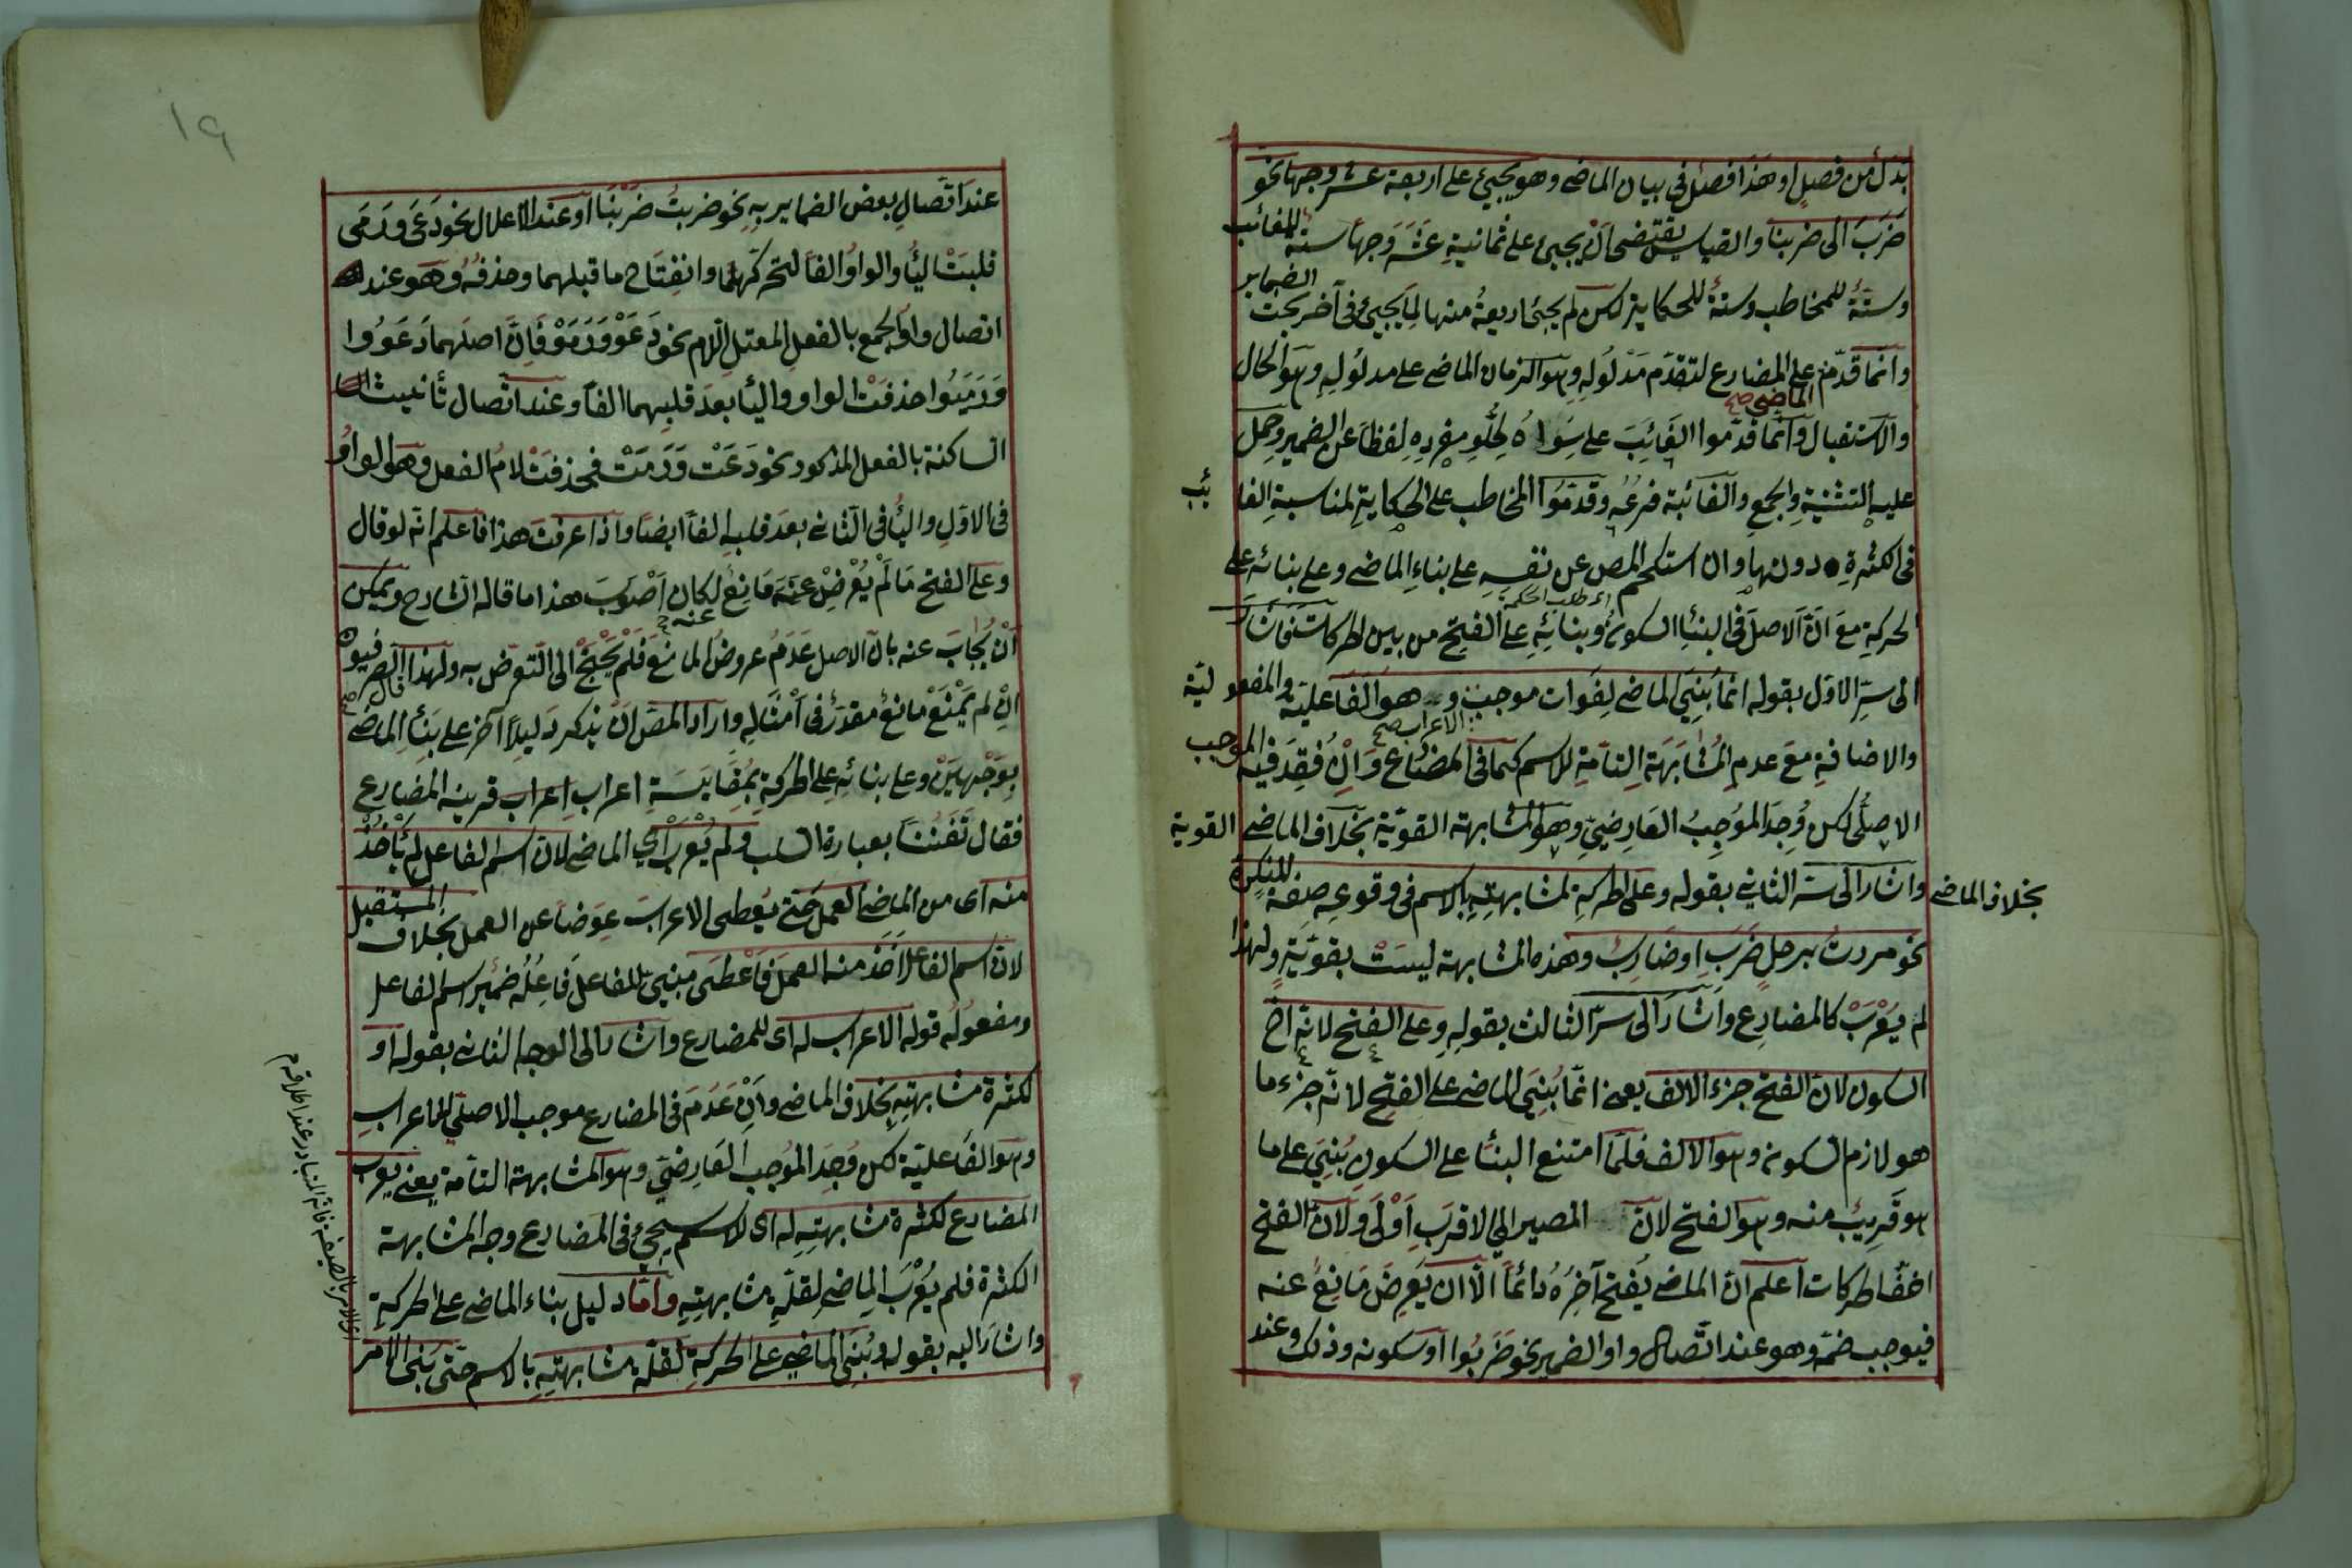 بدل من فصل او هذا فصل في بيان الماضي وهو يجيئ على اربعة عشر وجها نحو
ضَرَبَ الى ضربنا والقياس يقتضى ان يجيئ على ثمانية عشر وجها ستة للغائب
وستة للمخاطب وستة للحكاية لكن لم يجئ اربعة منها لما يجيئ في آخر بحث الضماير
وانما قدم على المضارع لتقدم مدلوله وهو الزمان الماضي على مدلوله وهو الحال
الماضي صح
والاستقبال وانما قدموا الغائب على سواه لخلو مفرده لفظا عن الضمير وحمل
عليه التثنية والجمع والغائبة فرعه وقدموا المخاطب على الحكاية لمناسبة الغائب
في الكثرة دونها وان استحكم المص عن نفسه على بناء الماضي وعلى بنائه على
اى طلب الحكمة
الحركة مع ان الاصل في البناء السكون وبنائه على الفتح من بين الحركات فاشار
الى سر الاول بقوله انما بني الماضي لفوات موجب وهو الفاعلية والمفعولية
الاعراب صح
والاضافة مع عدم المشابهة التامة للاسم كما في المضارع وان فقد فيه الموجب
الاصلى لكن وجد الموجب العارضي وهو المشابهة القوية بخلاف الماضي القوية
بخلاف الماضي واشار الى سر الثاني بقوله وعلى الحركة لمشابهته بالاسم في وقوعه صفة للنكرة
نحو مررت برجل ضرب او ضارب وهذه المشابهة ليست بقوية ولهذا
لم يعرب كالمضارع واشار الى سر الثالث بقوله وعلى الفتح لانه اخ
السكون لان الفتح جزء الالف يعني انما بني الماضي على الفتح لانه جزء ما
هو لازم السكون وهو الالف فلما امتنع البناء على السكون بني على ما
هو قريب منه وهو الفتح لان المصير الى الاقرب اولى ولان الفتح
اخف الحركات اعلم ان الماضي يفتح آخره دائما الا ان يعرض مانع عنه
فيوجب ضمه وهو عند اتصال واو الضمير نحو ضربوا او سكونه وذلك وعند
١٩
عند اتصال بعض الضماير به نحو ضربت ضربنا او عند الاعلال نحو دعى ورمى
قلبت الياء والواو الفا لتحركهما وانفتاح ما قبلهما وحذفه وهو عند
اتصال واو الجمع بالفعل المعتل اللام نحو دعوا ورموا فان اصلهما دعووا
ورميوا حذفت الواو والياء بعد قلبهما الفا وعند اتصال تانيث
الساكنة بالفعل المذكور نحو دعت ورمت فحذفت لام الفعل وهو الواو
في الاول والياء في الثاني بعد قلبه الفا ايضا واذا عرفت هذا فاعلم انه لو قال
وعلى الفتح ما لم يعرض عنه مانع لكان اصوب هذا ما قاله الشارح ويمكن
عنه
ان يجاب عنه بان الاصل عدم عروض المانع فلم يحتج الى التعرض به ولهذا قال الصرفيون
ان لم يمنع مانع مقدر في امثاله واراد المص ان يذكر دليلا آخر على بناء الماضي
بوجهين وعلى بنائه على الحركة بمقايسة اعراب اعراب قرينه المضارع
فقال تفننا بعبارة السلب ولم يعرب اي الماضي لان اسم الفاعل لم يأخذ
منه اى من الماضي العمل حتى يعطى الاعراب عوضا عن العمل بخلاف المستقبل
لان اسم الفاعل اخذ منه العمل فاعطى مبني للفاعل فاعله ضمير اسم الفاعل
ومفعوله قوله الاعراب له اى للمضارع واشار الى الوجه الثاني بقوله او
لكثرة مشابهته بخلاف الماضي وان عدم في المضارع موجب الاصلي للاعراب
وهو الفاعلية لكن وجد الموجب العارضي وهو المشابهة التامة يعنى يعرب
المضارع لكثرة مشابهته له اى للاسم سيجيئ في المضارع وجه المشابهة
الكثرة فلم يعرب الماضي لقلة مشابهته واما دليل بناء الماضي على الحركة
واشار اليه بقوله وبني الماضي على الحركة لقلة مشابهته بالاسم حتى بنى الامر
اى الامر بالصيغة فانه المتبادر عند اطلاقه م